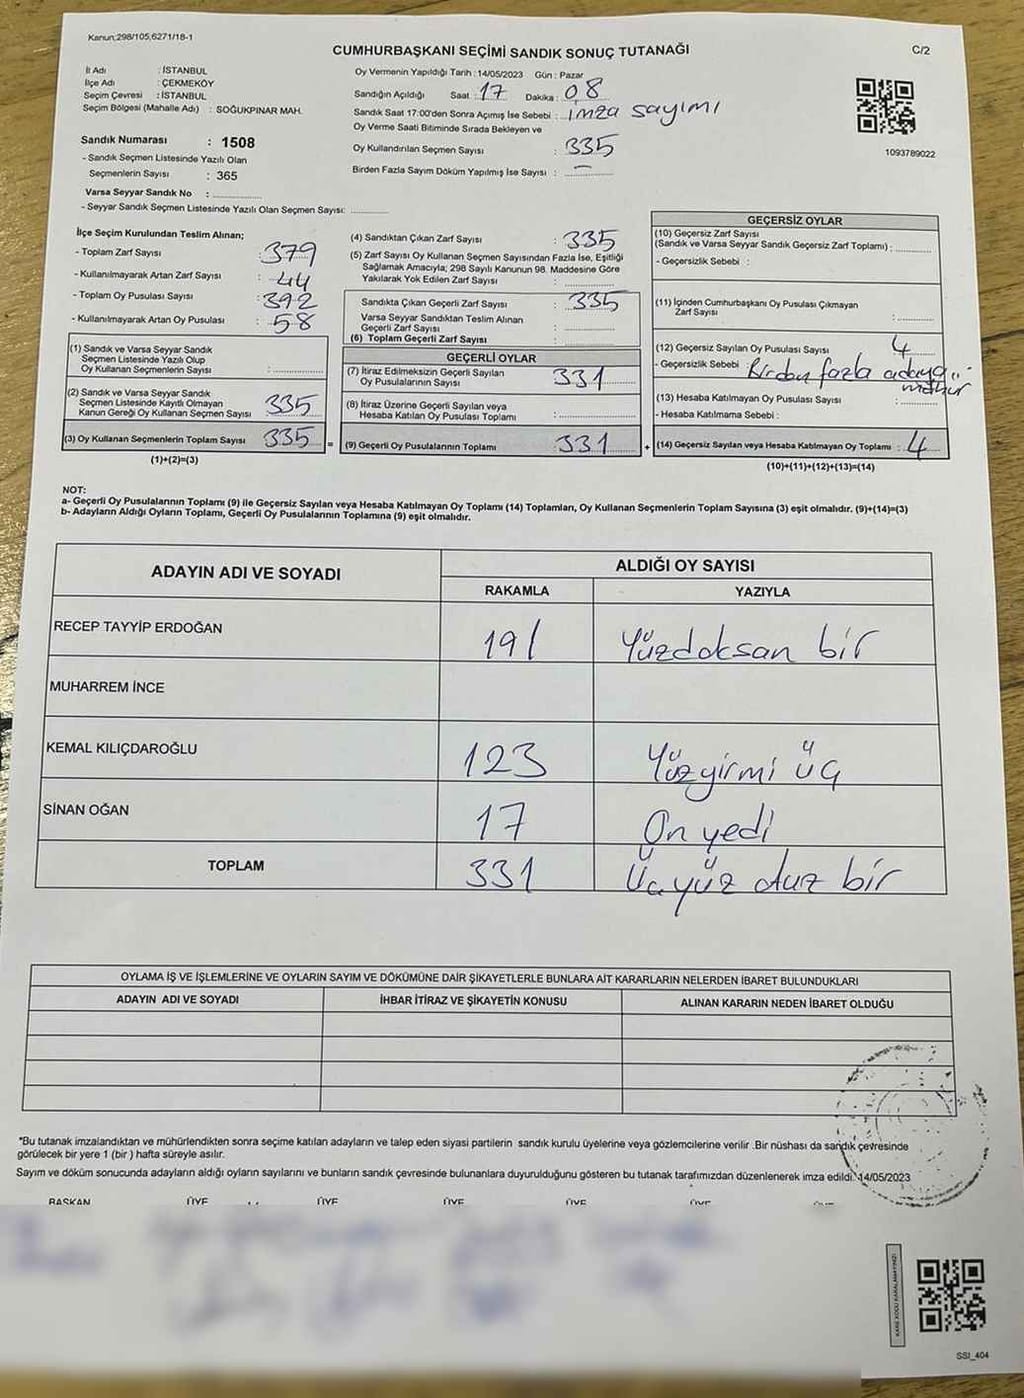 Kanun;298/105,6271/18-1
CUMHURBAŞKANI SEÇİMİ SANDIK SONUÇ TUTANAĞI
C/2
İl Adı : İSTANBUL
İlçe Adı : ÇEKMEKÖY
Seçim Çevresi : İSTANBUL
Seçim Bölgesi (Mahalle Adı) : SOĞUKPINAR MAH.
Oy Vermenin Yapıldığı Tarih : 14/05/2023 Gün : Pazar
Sandığın Açıldığı Saat : 17 Dakika : 08
Sandık Saat 17:00'den Sonra Açımış İse Sebebi : imza sayımı
Oy Verme Saati Bitiminde Sırada Bekleyen ve
Oy Kullandırılan Seçmen Sayısı : 335
Birden Fazla Sayım Döküm Yapılmış İse Sayısı : –
1093789022
Sandık Numarası : 1508
- Sandık Seçmen Listesinde Yazılı Olan
Seçmenlerin Sayısı : 365
Varsa Seyyar Sandık No :
- Seyyar Sandık Seçmen Listesinde Yazılı Olan Seçmen Sayısı:
İlçe Seçim Kurulundan Teslim Alınan;
- Toplam Zarf Sayısı : 379
- Kullanılmayarak Artan Zarf Sayısı : 44
- Toplam Oy Pusulası Sayısı : 392
- Kullanılmayarak Artan Oy Pusulası : 58
(1) Sandık ve Varsa Seyyar Sandık
Seçmen Listesinde Yazılı Olup
Oy Kullanan Seçmenlerin Sayısı :
(2) Sandık ve Varsa Seyyar Sandık
Seçmen Listesinde Kayıtlı Olmayan
Kanun Gereği Oy Kullanan Seçmen Sayısı : 335
(3) Oy Kullanan Seçmenlerin Toplam Sayısı 335 =
(1)+(2)=(3)
(4) Sandıktan Çıkan Zarf Sayısı : 335
(5) Zarf Sayısı Oy Kullanan Seçmen Sayısından Fazla İse, Eşitliği
Sağlamak Amacıyla; 298 Sayılı Kanunun 98. Maddesine Göre
Yakılarak Yok Edilen Zarf Sayısı :
Sandıkta Çıkan Geçerli Zarf Sayısı : 335
Varsa Seyyar Sandıktan Teslim Alınan
Geçerli Zarf Sayısı :
(6) Toplam Geçerli Zarf Sayısı :
GEÇERLİ OYLAR
(7) İtiraz Edilmeksizin Geçerli Sayılan
Oy Pusulalarının Sayısı 331
(8) İtiraz Üzerine Geçerli Sayılan veya
Hesaba Katılan Oy Pusulası Toplamı :
(9) Geçerli Oy Pusulalarının Toplamı 331 +
GEÇERSİZ OYLAR
(10) Geçersiz Zarf Sayısı
(Sandık ve Varsa Seyyar Sandık Geçersiz Zarf Toplamı) :
- Geçersizlik Sebebi :
(11) İçinden Cumhurbaşkanı Oy Pusulası Çıkmayan
Zarf Sayısı :
(12) Geçersiz Sayılan Oy Pusulası Sayısı : 4
- Geçersizlik Sebebi Birden fazla adaya
mühür
(13) Hesaba Katılmayan Oy Pusulası Sayısı :
- Hesaba Katılmama Sebebi :
(14) Geçersiz Sayılan veya Hesaba Katılmayan Oy Toplamı : 4
(10)+(11)+(12)+(13)=(14)
NOT:
a- Geçerli Oy Pusulalarının Toplamı (9) ile Geçersiz Sayılan veya Hesaba Katılmayan Oy Toplamı (14) Toplamları, Oy Kullanan Seçmenlerin Toplam Sayısına (3) eşit olmalıdır. (9)+(14)=(3)
b- Adayların Aldığı Oyların Toplamı, Geçerli Oy Pusulalarının Toplamına (9) eşit olmalıdır.
ADAYIN ADI VE SOYADI
ALDIĞI OY SAYISI
RAKAMLA YAZIYLA
RECEP TAYYİP ERDOĞAN 191 Yüzdoksan bir
MUHARREM İNCE
KEMAL KILIÇDAROĞLU 123 Yüzyirmi üç
SİNAN OĞAN 17 On yedi
TOPLAM 331 Üçyüz otuz bir
OYLAMA İŞ VE İŞLEMLERİNE VE OYLARIN SAYIM VE DÖKÜMÜNE DAİR ŞİKAYETLERLE BUNLARA AİT KARARLARIN NELERDEN İBARET BULUNDUKLARI
ADAYIN ADI VE SOYADI İHBAR İTİRAZ VE ŞİKAYETİN KONUSU ALINAN KARARIN NEDEN İBARET OLDUĞU
*Bu tutanak imzalandıktan ve mühürlendikten sonra seçime katılan adayların ve talep eden siyasi partilerin sandık kurulu üyelerine veya gözlemcilerine verilir .Bir nüshası da sandık çevresinde
görülecek bir yere 1 (bir ) hafta süreyle asılır.
Sayım ve döküm sonucunda adayların aldığı oyların sayılarını ve bunların sandık çevresinde bulunanlara duyurulduğunu gösteren bu tutanak tarafımızdan düzenlenerek imza edildi. 14/05/2023
BAŞKAN ÜYE ÜYE ÜYE ÜYE ÜYE
KARE KODU KARALAMAYINIZ!
SSI_404